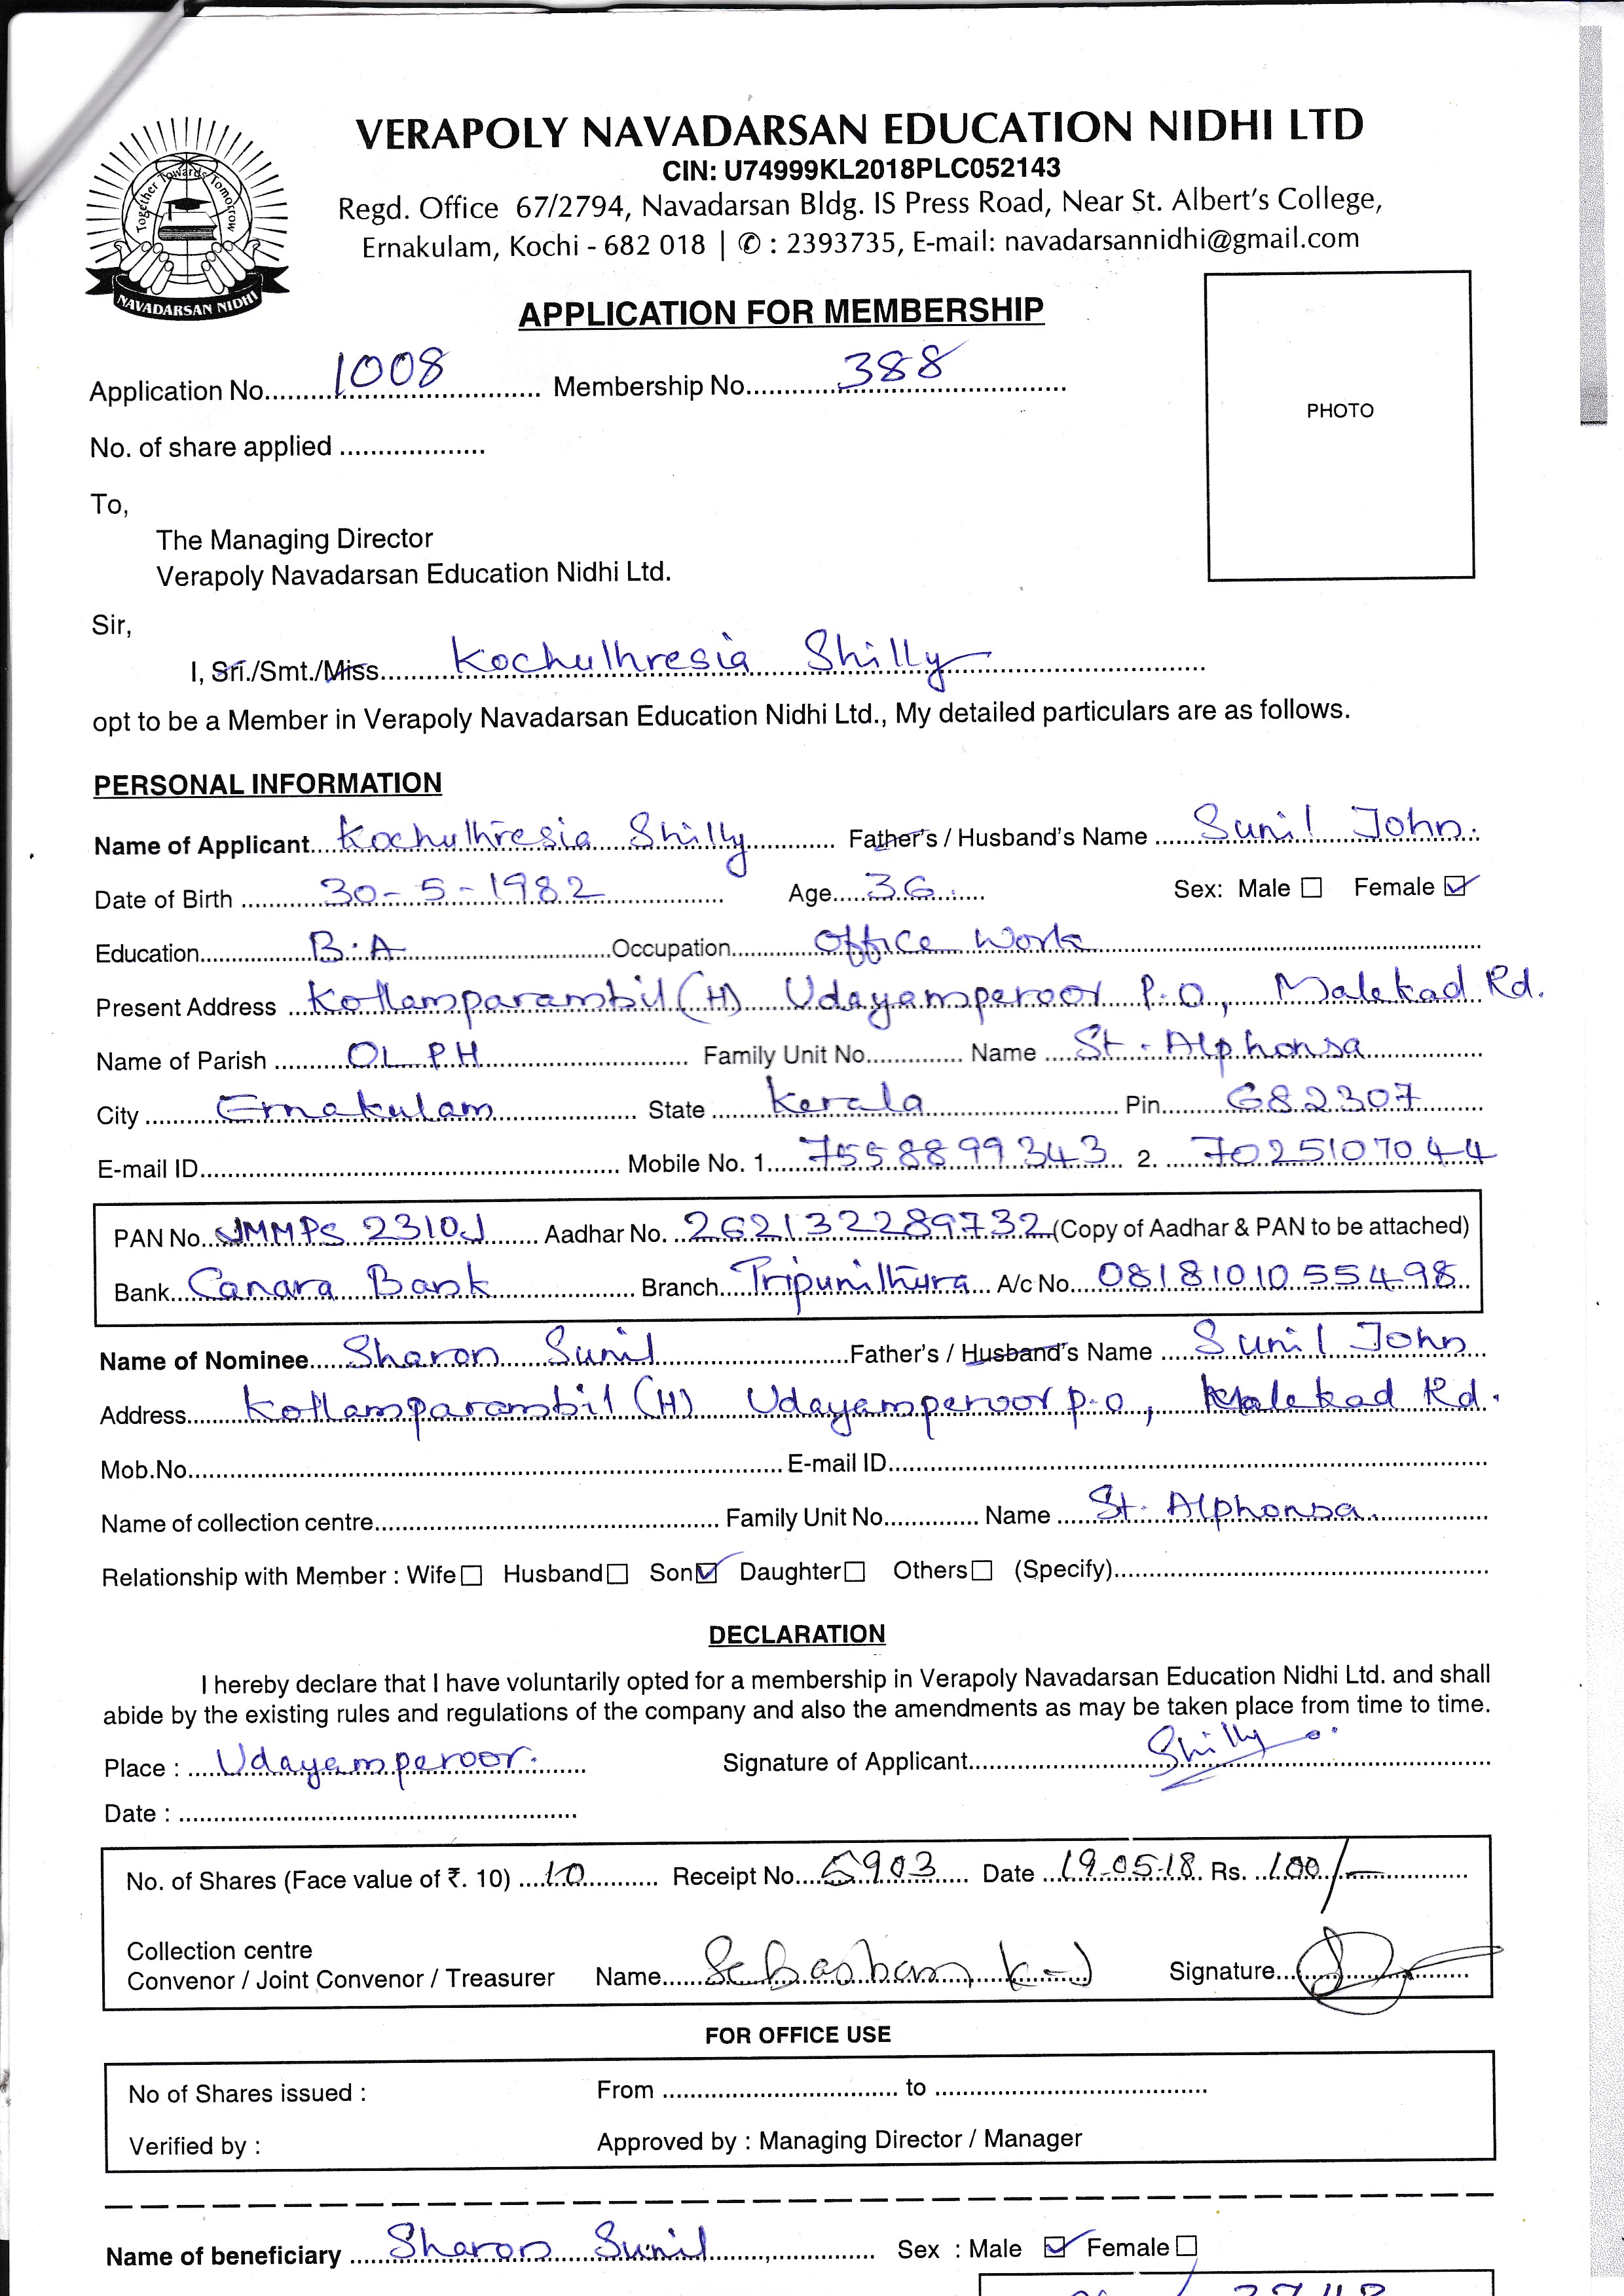 VERAPOLY NAVADARSAN EDUCATION NIDHI LTD
CIN: U74999KL2018PLC052143
Regd. Office 67/2794, Navadarsan Bldg. IS Press Road, Near St. Albert's College,
Ernakulam, Kochi - 682 018 | ✆ : 2393735, E-mail: navadarsannidhi@gmail.com
Together Towards Tomorrow
NAVADARSAN NIDHI
APPLICATION FOR MEMBERSHIP
Application No. 1008 Membership No. 388
PHOTO
No. of share applied
To,
The Managing Director
Verapoly Navadarsan Education Nidhi Ltd.
Sir,
I, Sri./Smt./Miss. Kochuthresia Shilly
opt to be a Member in Verapoly Navadarsan Education Nidhi Ltd., My detailed particulars are as follows.
PERSONAL INFORMATION
Name of Applicant Kochuthresia Shilly Father's / Husband's Name Sunil John
Date of Birth 30-5-1982 Age 36 Sex: Male ☐ Female ☑
Education B.A Occupation Office Work
Present Address Kottamparambil (H) Udayamperoor P.O, Malekad Rd.
Name of Parish OLPH Family Unit No. Name St. Alphonsa
City Ernakulam State Kerala Pin 682307
E-mail ID Mobile No. 1. 7558899343 2. 7025107044
PAN No. JMMPS 2310J Aadhar No. 262132289732 (Copy of Aadhar & PAN to be attached)
Bank Canara Bank Branch Tripunithura A/c No. 0818101055498
Name of Nominee Sharon Sunil Father's / Husband's Name Sunil John
Address Kottamparambil (H) Udayamperoor p.o, Malekad Rd.
Mob.No. E-mail ID
Name of collection centre Family Unit No. Name St. Alphonsa
Relationship with Member : Wife ☐ Husband ☐ Son ☑ Daughter ☐ Others ☐ (Specify)
DECLARATION
I hereby declare that I have voluntarily opted for a membership in Verapoly Navadarsan Education Nidhi Ltd. and shall
abide by the existing rules and regulations of the company and also the amendments as may be taken place from time to time.
Place : Udayamperoor. Signature of Applicant Shilly
Date :
No. of Shares (Face value of ₹. 10) 10 Receipt No. 5903 Date 19-05-18 Rs. 100/-
Collection centre
Convenor / Joint Convenor / Treasurer Name Sebastian K-J Signature
FOR OFFICE USE
No of Shares issued : From to
Verified by : Approved by : Managing Director / Manager
Name of beneficiary Sharon Sunil Sex : Male ☑ Female ☐